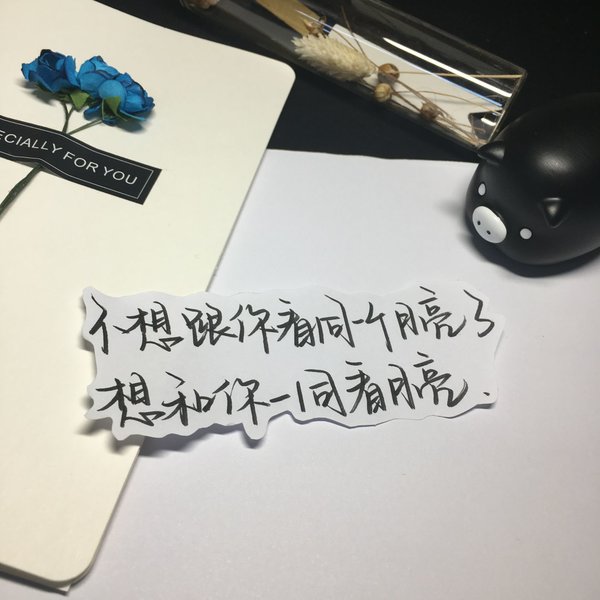 ECIALLY FOR YOU
不想跟你看同一个月亮了
想和你一同看月亮.